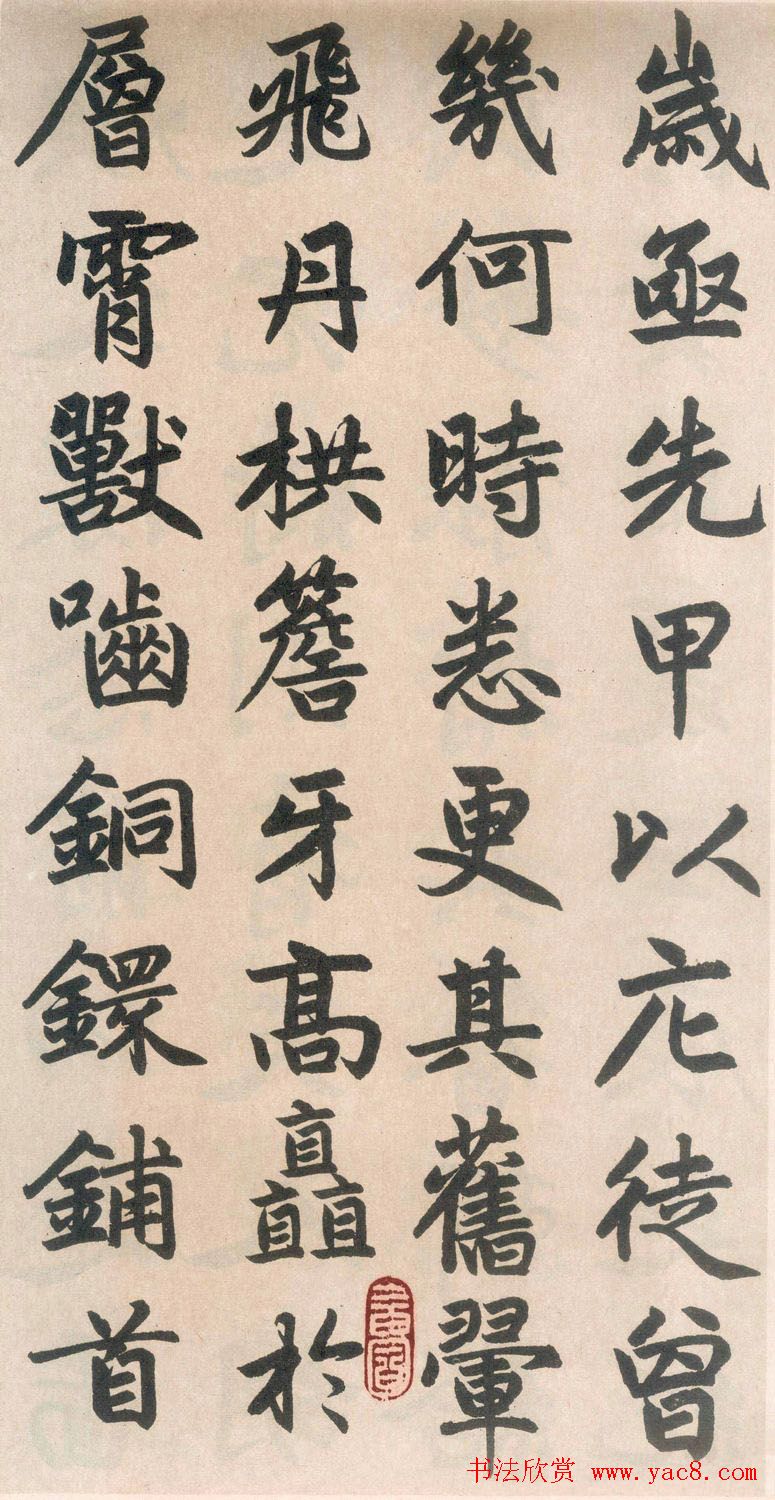 歲亟先甲以庀徒曾
幾何時悉更其舊翬
飛丹栱簷牙高矗於
層霄獸嚙銅鐶鋪首
书法欣赏 www.yac8.com